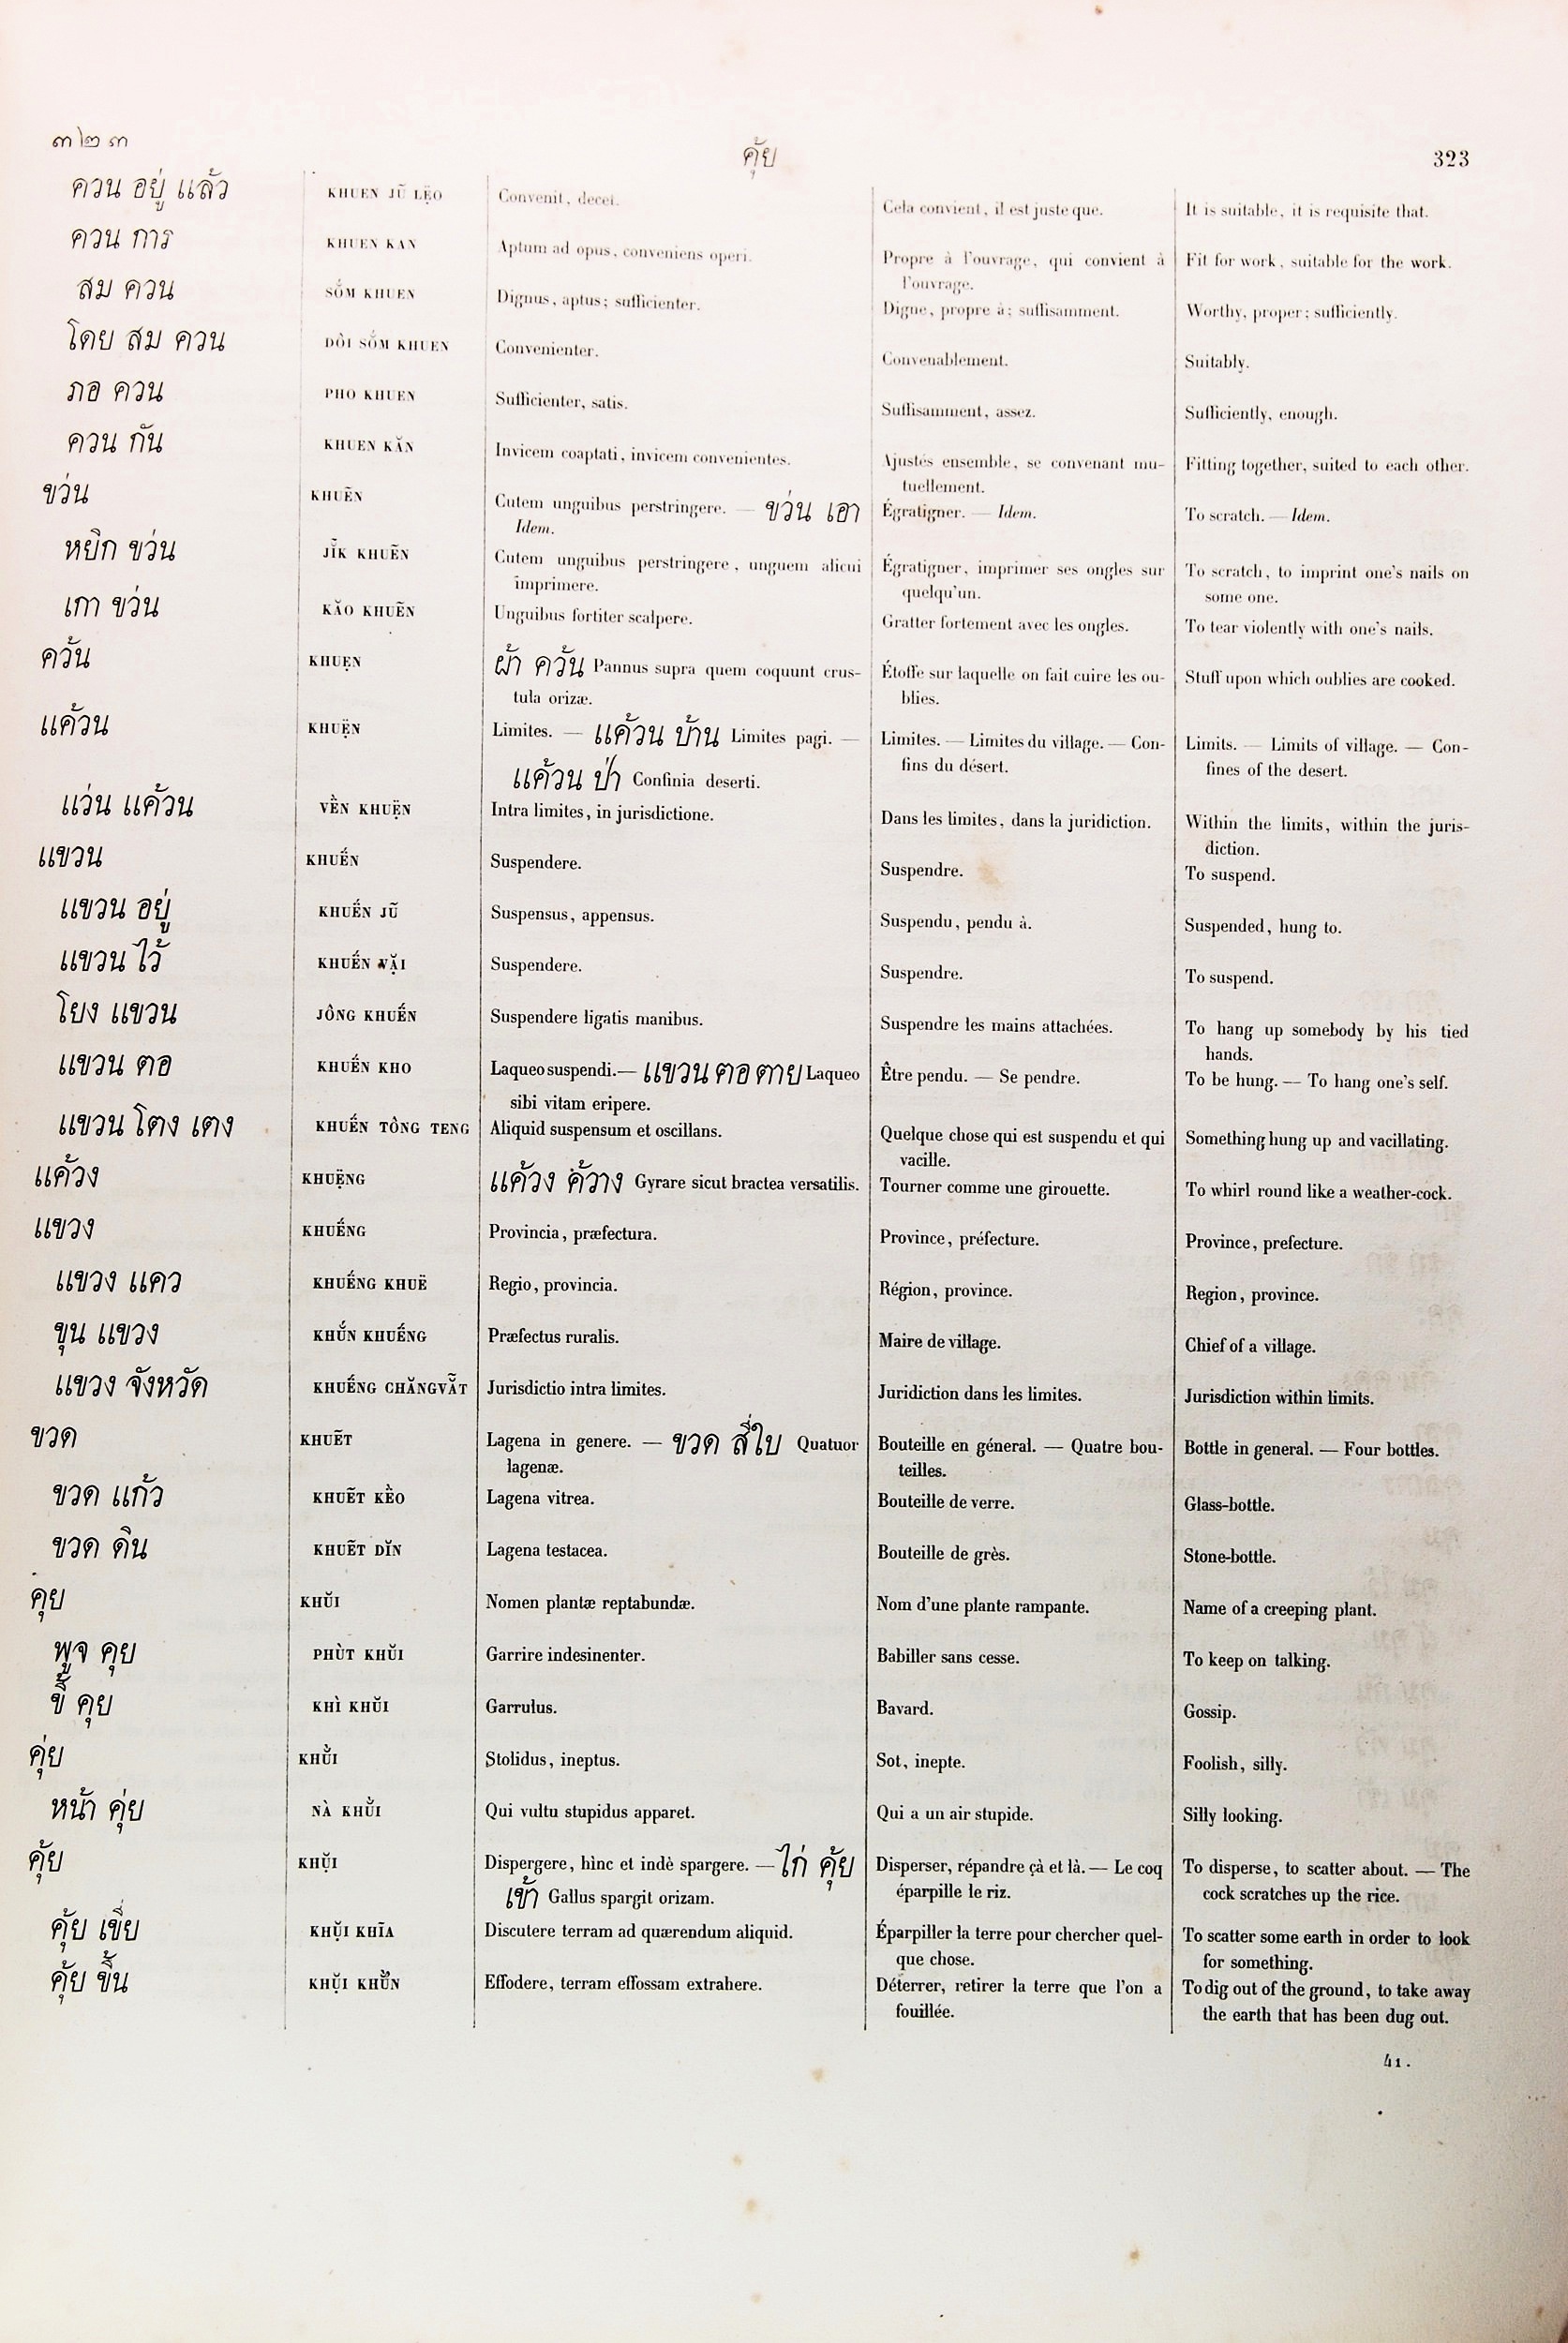 ๓๒๓ คุ้ย 323
ควน อยู่ แล้ว KHUEN JŨ LẸ̈O Convenit, decet. Cela convient, il est juste que. It is suitable, it is requisite that.
ควน การ KHUEN KAN Aptum ad opus, conveniens operi. Propre à l'ouvrage, qui convient à Fit for work, suitable for the work.
l'ouvrage.
สม ควน SỔM KHUEN Dignus, aptus; sufficienter. Digne, propre à; suffisamment. Worthy, proper; sufficiently.
โดย สม ควน DÔI SỔM KHUEN Convenienter. Convenablement. Suitably.
ภอ ควน PHO KHUEN Sufficienter, satis. Suffisamment, assez. Sufficiently, enough.
ควน กัน KHUEN KĂN Invicem coaptati, invicem convenientes. Ajustés ensemble, se convenant mu- Fitting together, suited to each other.
tuellement.
ขว่น KHUẼN Cutem unguibus perstringere. — ขว่น เอา Égratigner. — Idem. To scratch. — Idem.
Idem.
หยิก ขว่น JĬ̃K KHUẼN Cutem unguibus perstringere, unguem alicui Égratigner, imprimer ses ongles sur To scratch, to imprint one's nails on
imprimere. quelqu'un. some one.
เกา ขว่น KĂO KHUẼN Unguibus fortiter scalpere. Gratter fortement avec les ongles. To tear violently with one's nails.
ควั้น KHUẸN ผ้า ควั้น Pannus supra quem coquunt crus- Étoffe sur laquelle on fait cuire les ou- Stuff upon which oublies are cooked.
tula orizæ. blies.
แค้วน KHUẸ̈N Limites. — แค้วน บ้าน Limites pagi. — Limites. — Limites du village. — Con- Limits. — Limits of village. — Con-
แค้วน ป่า Confinia deserti. fins du désert. fines of the desert.
แว่น แค้วน VÈ̈N KHUẸ̈N Intra limites, in jurisdictione. Dans les limites, dans la juridiction. Within the limits, within the juris-
diction.
แขวน KHUḖN Suspendere. Suspendre. To suspend.
แขวน อยู่ KHUḖN JŨ Suspensus, appensus. Suspendu, pendu à. Suspended, hung to.
แขวน ไว้ KHUḖN VẶI Suspendere. Suspendre. To suspend.
โยง แขวน JÔNG KHUḖN Suspendere ligatis manibus. Suspendre les mains attachées. To hang up somebody by his tied
hands.
แขวน ฅอ KHUḖN KHO Laqueo suspendi.— แขวน ฅอ ตาย Laqueo Être pendu. — Se pendre. To be hung. — To hang one's self.
sibi vitam eripere.
แขวน โตง เตง KHUḖN TÔNG TENG Aliquid suspensum et oscillans. Quelque chose qui est suspendu et qui Something hung up and vacillating.
vacille.
แค้วง KHUẸ̈NG แค้วง คว้าง Gyrare sicut bractea versatilis. Tourner comme une girouette. To whirl round like a weather-cock.
แขวง KHUḖNG Provincia, præfectura. Province, préfecture. Province, prefecture.
แขวง แคว KHUḖNG KHUË Regio, provincia. Région, province. Region, province.
ขุน แขวง KHŬ́N KHUḖNG Præfectus ruralis. Maire de village. Chief of a village.
แขวง จังหวัด KHUḖNG CHĂNGVẴT Jurisdictio intra limites. Juridiction dans les limites. Jurisdiction within limits.
ขวด KHUẼT Lagena in genere. — ขวด สี่ใบ Quatuor Bouteille en géneral. — Quatre bou- Bottle in general. — Four bottles.
lagenæ. teilles.
ขวด แก้ว KHUẼT KÈ̈O Lagena vitrea. Bouteille de verre. Glass-bottle.
ขวด ดิน KHUẼT DĬN Lagena testacea. Bouteille de grès. Stone-bottle.
คุย KHŬI Nomen plantæ reptabundæ. Nom d'une plante rampante. Name of a creeping plant.
พูจ คุย PHÙT KHŬI Garrire indesinenter. Babiller sans cesse. To keep on talking.
ขี้ คุย KHÌ KHŬI Garrulus. Bavard. Gossip.
คุ่ย KHŬ̀I Stolidus, ineptus. Sot, inepte. Foolish, silly.
หน้า คุ่ย NÀ KHŬ̀I Qui vultu stupidus apparet. Qui a un air stupide. Silly looking.
คุ้ย KHỤ̆I Dispergere, hìnc et indè spargere. — ไก่ คุ้ย Disperser, répandre çà et là. — Le coq To disperse, to scatter about. — The
เข้า Gallus spargit orizam. éparpille le riz. cock scratches up the rice.
คุ้ย เขี่ย KHỤ̆I KHĨA Discutere terram ad quærendum aliquid. Éparpiller la terre pour chercher quel- To scatter some earth in order to look
que chose. for something.
คุ้ย ขึ้น KHỤ̆I KHỪ̆N Effodere, terram effossam extrahere. Déterrer, retirer la terre que l'on a To dig out of the ground, to take away
fouillée. the earth that has been dug out.
41.